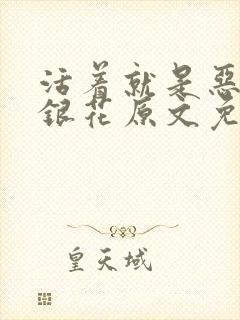 活着就是恶
銀花原文免
皇天域